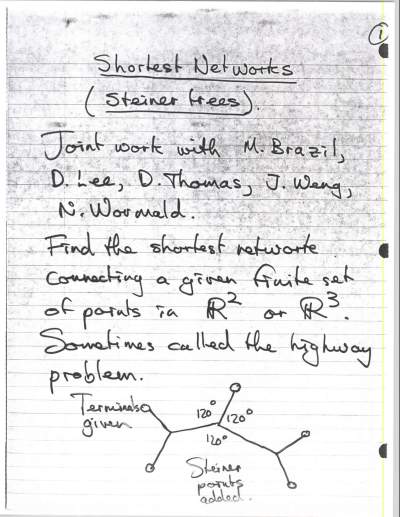 1
Shortest Networks
(Steiner trees).
Joint work with M. Brazil,
D. Lee, D. Thomas, J. Weng,
N. Wormald.
Find the shortest network
connecting a given finite set
of points in ℝ² or ℝ³.
Sometimes called the highway
problem.
Terminals
given
120° 120°
120°
Steiner
points
added.